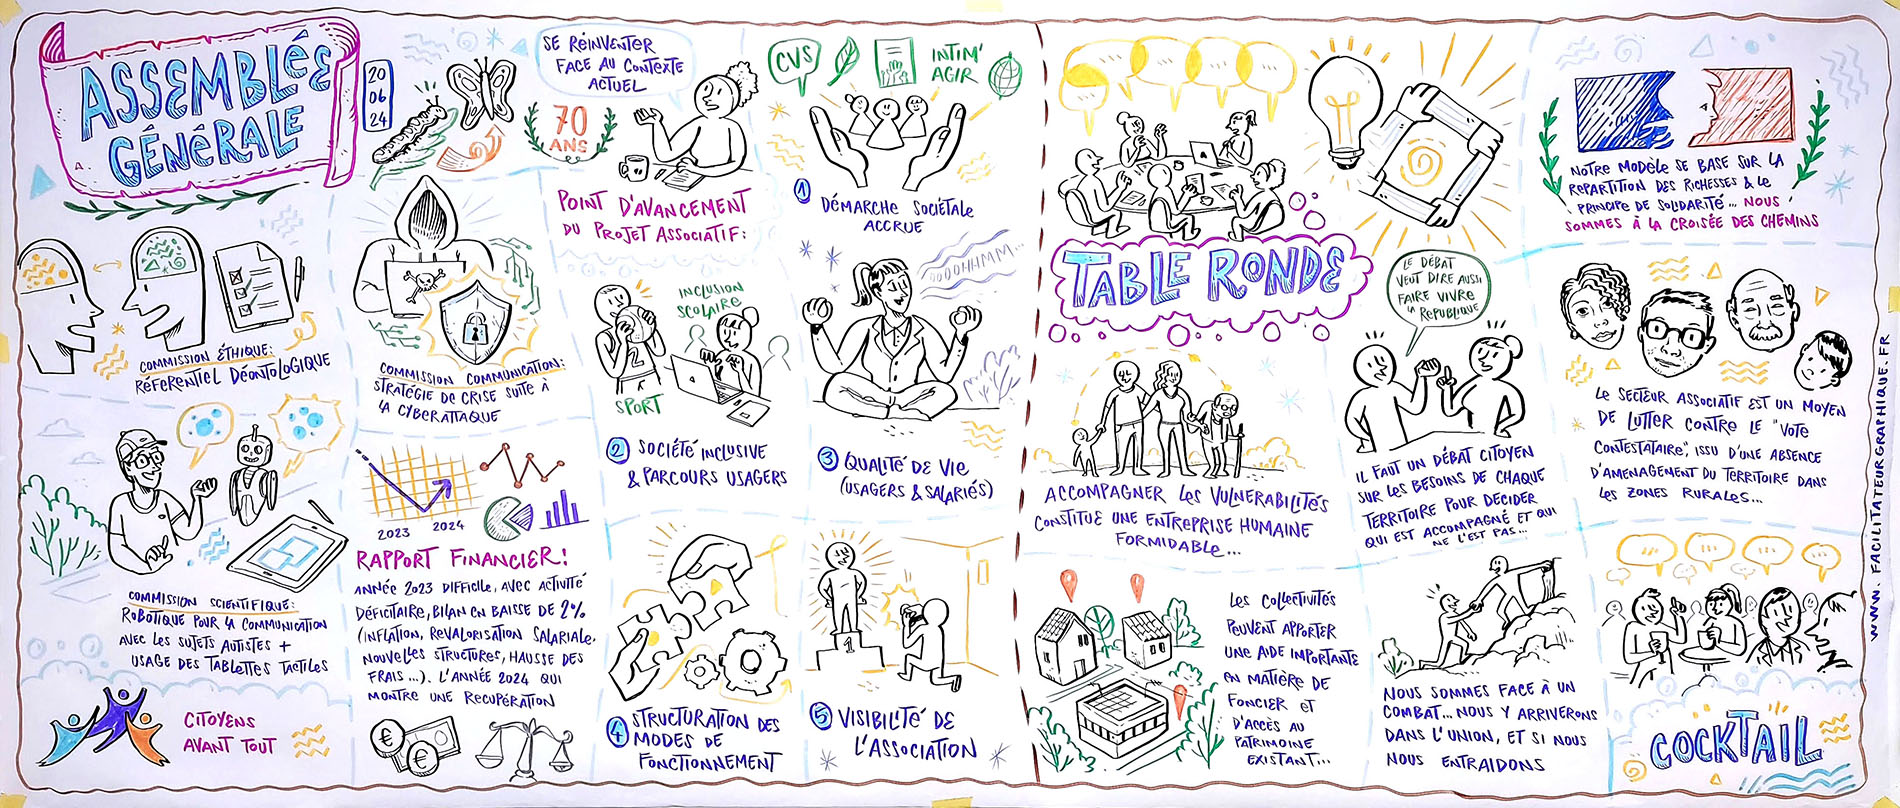 ASSEMBLÉE
GÉNÉRALE
20
06
24
SE RÉINVENTER
FACE AU CONTEXTE
ACTUEL
70
ANS
COMMISSION ÉTHIQUE:
RÉFÉRENTIEL DÉONTOLOGIQUE
COMMISSION COMMUNICATION:
STRATÉGIE DE CRISE SUITE À
LA CYBERATTAQUE
COMMISSION SCIENTIFIQUE:
ROBOTIQUE POUR LA COMMUNICATION
AVEC LES SUJETS AUTISTES +
USAGE DES TABLETTES TACTILES
CITOYENS
AVANT TOUT
2023
2024
RAPPORT FINANCIER!
ANNÉE 2023 DIFFICILE, AVEC ACTIVITÉ
DÉFICITAIRE, BILAN EN BAISSE DE 2%
(INFLATION, REVALORISATION SALARIALE,
NOUVELLES STRUCTURES, HAUSSE DES
FRAIS...). L'ANNÉE 2024 QUI
MONTRE UNE RECUPÉRATION
€
€
POINT D'AVANCEMENT
DU PROJET ASSOCIATIF:
CVS
INTIM'
AGIR
1 DÉMARCHE SOCIÉTALE
ACCRUE
INCLUSION
SCOLAIRE
2
SPORT
2 SOCIÉTÉ INCLUSIVE
& PARCOURS USAGERS
OOOOHHMMM...
3 QUALITÉ DE VIE
(USAGERS & SALARIÉS)
4 STRUCTURATION DES
MODES DE
FONCTIONNEMENT
1
5 VISIBILITÉ DE
L'ASSOCIATION
TABLE RONDE
ACCOMPAGNER LES VULNERABILITÉS
CONSTITUE UNE ENTREPRISE HUMAINE
FORMIDABLE...
LE DÉBAT
VEUT DIRE AUSSI
FAIRE VIVRE
LA RÉPUBLIQUE
IL FAUT UN DÉBAT CITOYEN
SUR LES BESOINS DE CHAQUE
TERRITOIRE POUR DÉCIDER
QUI EST ACCOMPAGNÉ ET QUI
NE L'EST PAS...
LES COLLECTIVITÉS
PEUVENT APPORTER
UNE AIDE IMPORTANTE
EN MATIÈRE DE
FONCIER ET
D'ACCÈS AU
PATRIMOINE
EXISTANT...
NOUS SOMMES FACE À UN
COMBAT... NOUS Y ARRIVERONS
DANS L'UNION, ET SI NOUS
NOUS ENTRAIDONS
NOTRE MODÈLE SE BASE SUR LA
REPARTITION DES RICHESSES & LE
PRINCIPE DE SOLIDARITÉ... NOUS
SOMMES À LA CROISÉE DES CHEMINS
LE SECTEUR ASSOCIATIF EST UN MOYEN
DE LUTTER CONTRE LE "VOTE
CONTESTATAIRE", ISSU D'UNE ABSENCE
D'AMENAGEMENT DU TERRITOIRE DANS
LES ZONES RURALES...
COCKTAIL
WWW.FACILITATEURGRAPHIQUE.FR